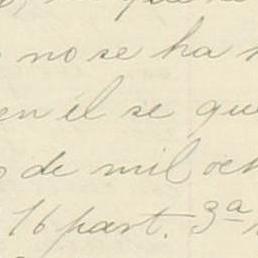 no se ha
en él se que
de mil och
16 part. 3ª